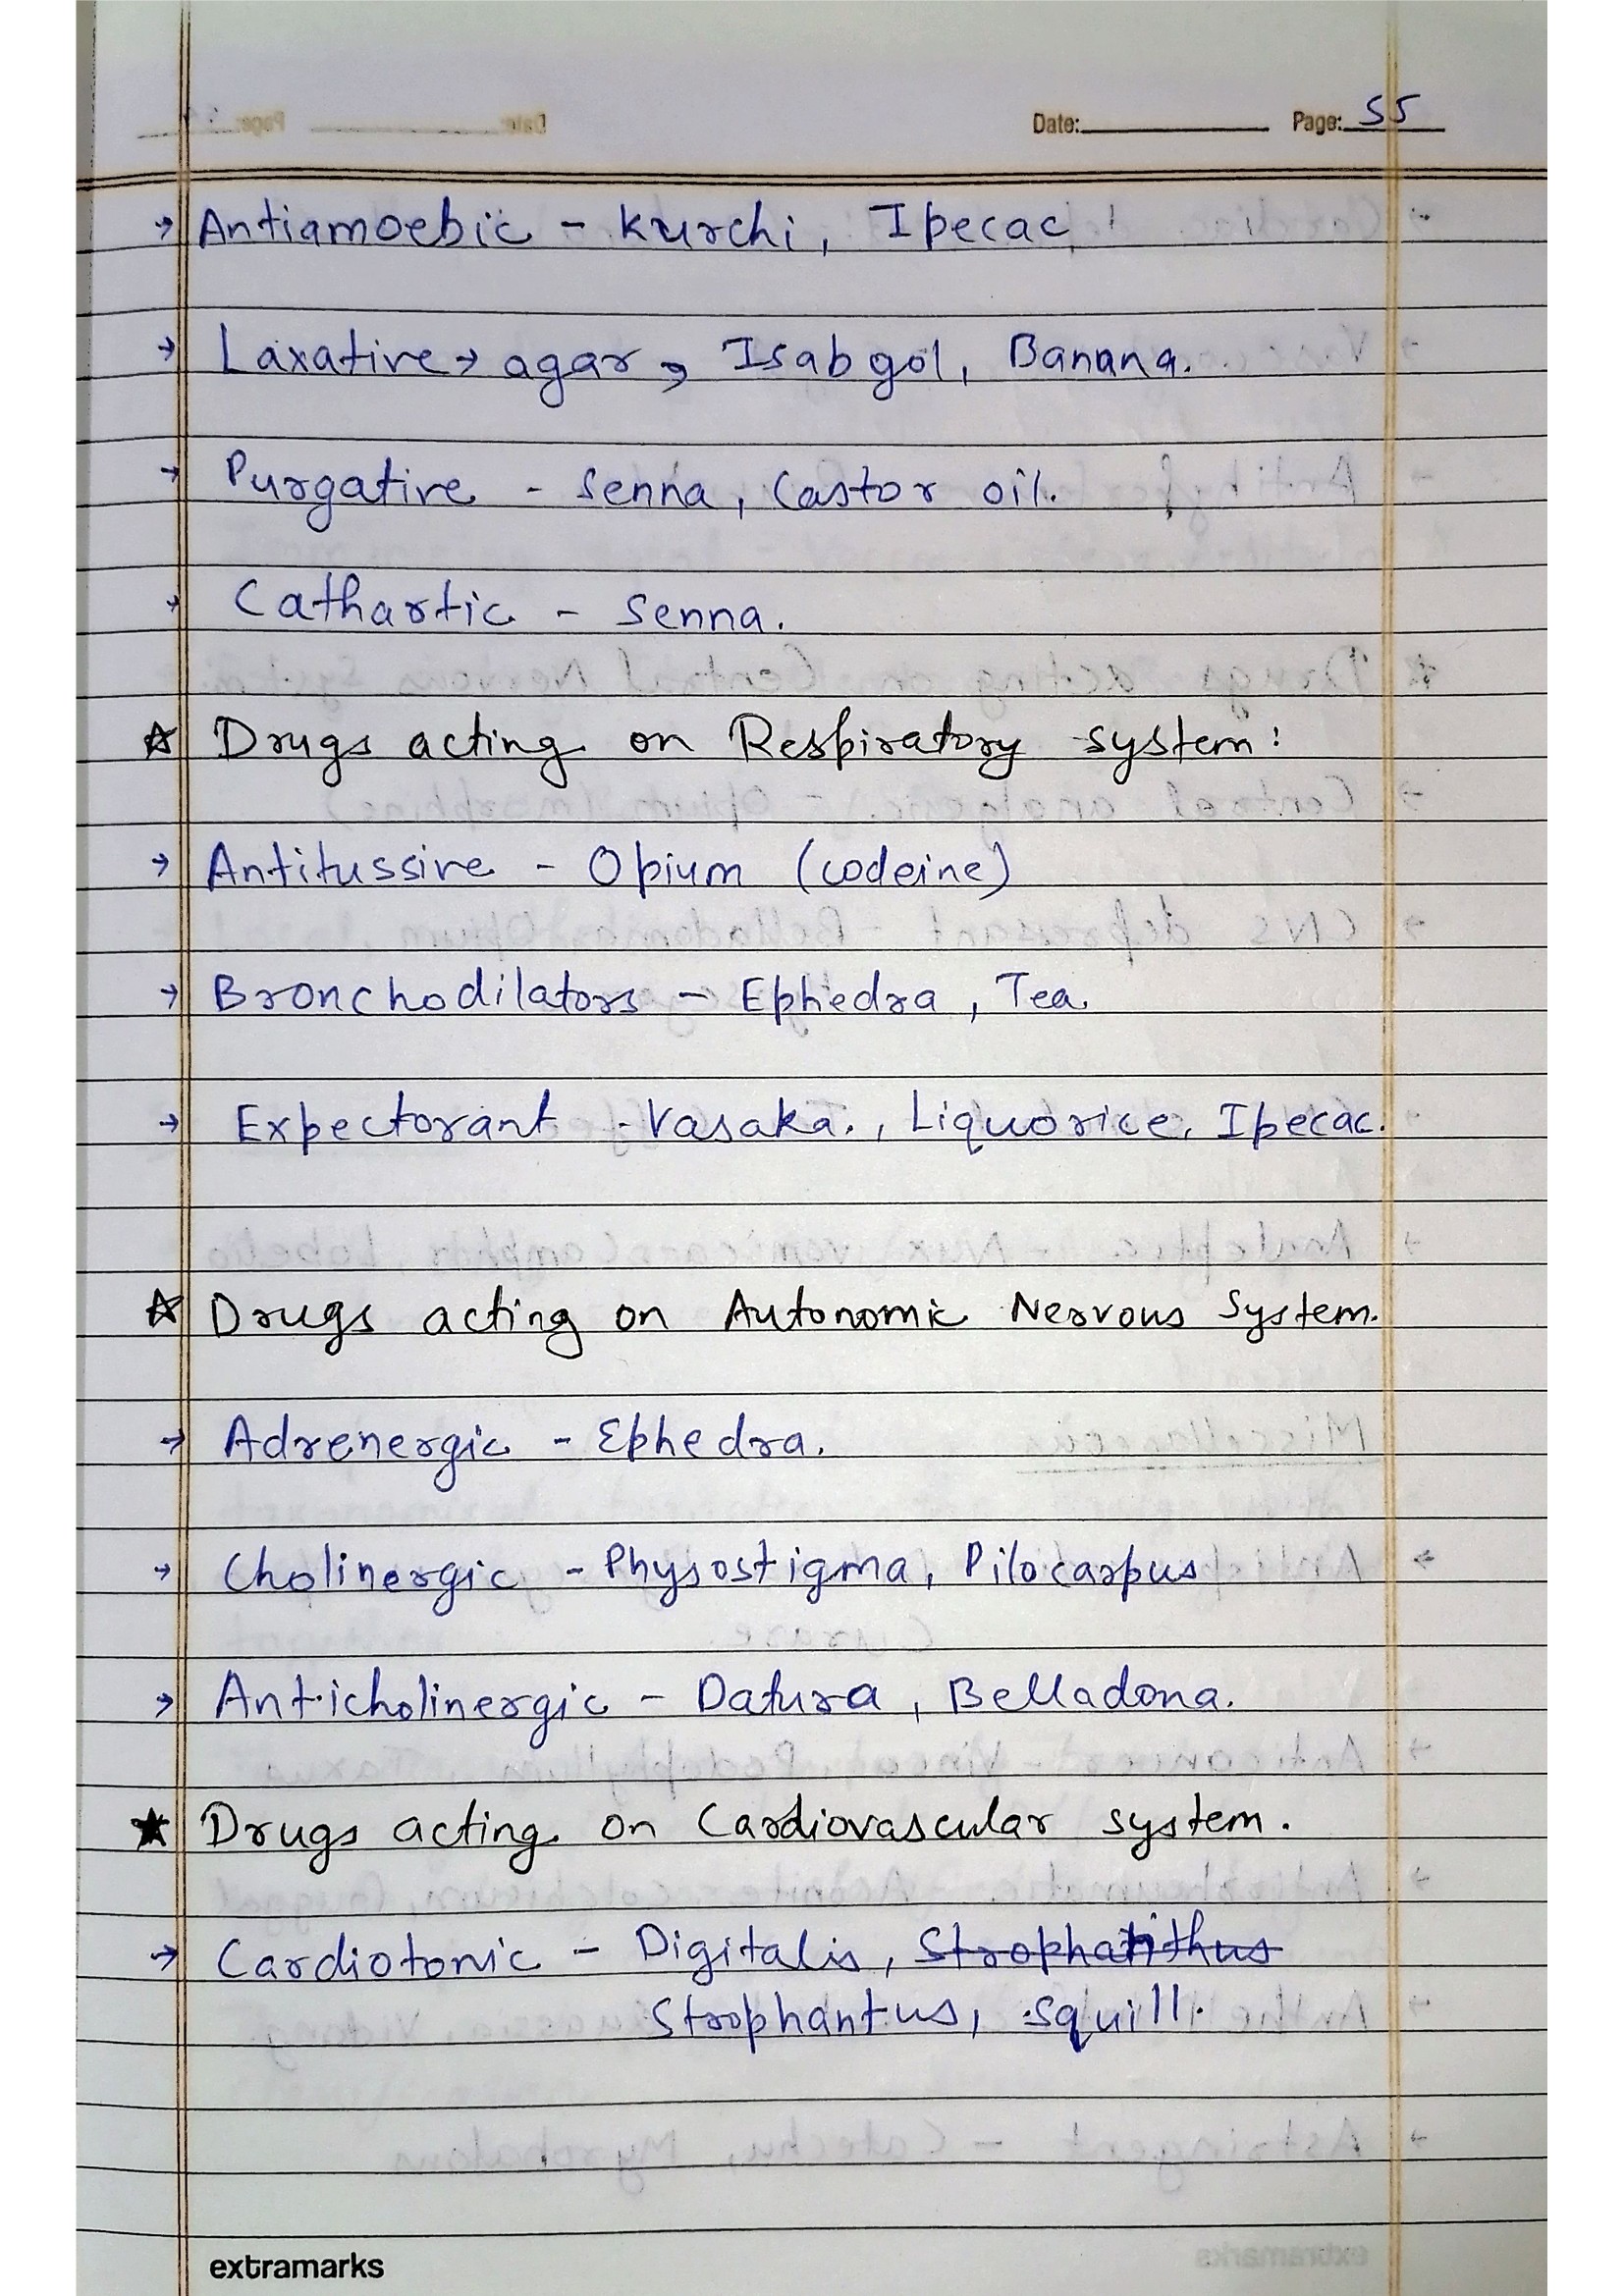 Date: Page: 55
→ Antiamoebic - Kurchi, Ipecac
→ Laxative → agar, Isabgol, Banana.
→ Purgative - Senna, Castor oil.
→ Cathartic - Senna.
☆ Drugs acting on Respiratory system:
→ Antitussive - Opium (codeine)
→ Bronchodilators - Ephedra, Tea
→ Expectorant - Vasaka., Liquorice, Ipecac.
☆ Drugs acting on Autonomic Nervous System.
→ Adrenergic - Ephedra.
→ Cholinergic - Physostigma, Pilocarpus
→ Anticholinergic - Datura, Belladona.
★ Drugs acting on Cardiovascular system.
→ Cardiotonic - Digitalis, Strophanthus
Strophantus, squill.
extramarks